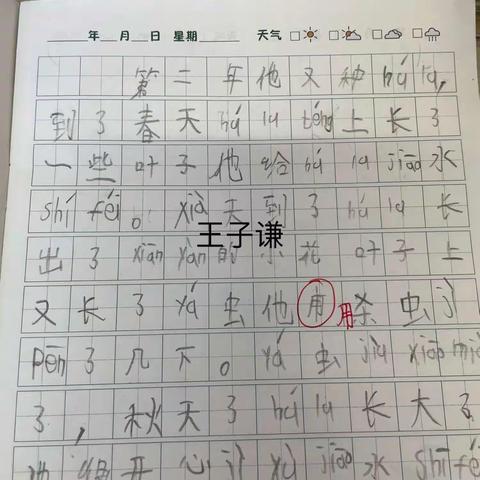 年 月 日 星期 天气
第二年他又种hú lu,
到了春天hú lu téng上长了
一些叶子他给hú lu jiāo水
shī féi。xià天到了hú lu长
出了xiān yàn的小花叶子上
又长了yá虫他用用杀虫jì
pēn了几下。yá虫jiù xiāo miè
了,秋天了hú lu长大了
他很开心jì xù jiāo水shī féi
王子谦